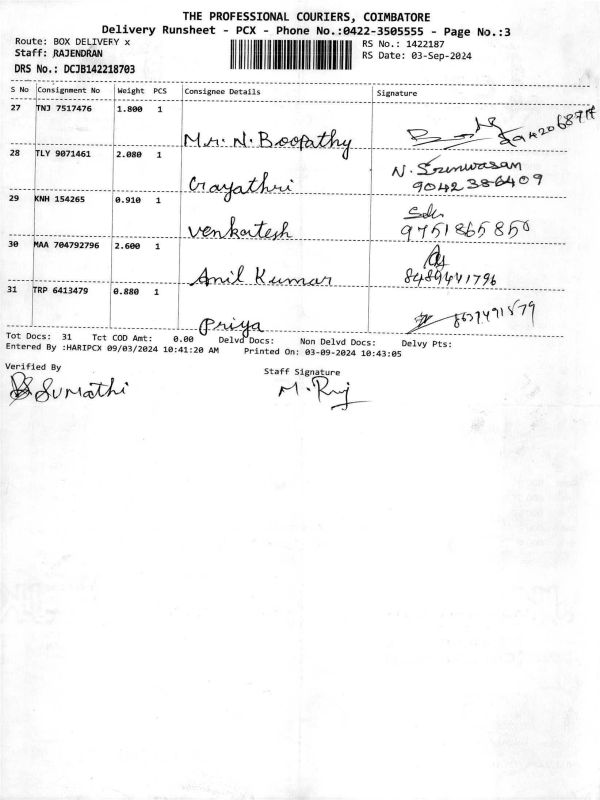 THE PROFESSIONAL COURIERS, COIMBATORE
Delivery Runsheet - PCX - Phone No.:0422-3505555 - Page No.:3
Route: BOX DELIVERY x RS No.: 1422187
Staff: RAJENDRAN RS Date: 03-Sep-2024
DRS No.: DCJB142218703
S No Consignment No Weight PCS Consignee Details Signature
27 TNJ 7517476 1.800 1
Mr. N. Boopathy
28 TLY 9071461 2.080 1 N. Srinivasan
Gayathri 9042386409
29 KNH 154265 0.910 1
Venkatesh 9751865850
30 MAA 704792796 2.600 1
Anil Kumar 8489441796
31 TRP 6413479 0.880 1
Priya
Tot Docs: 31 Tct COD Amt: 0.00 Delvd Docs: Non Delvd Docs: Delvy Pts:
Entered By :HARIPCX 09/03/2024 10:41:20 AM Printed On: 03-09-2024 10:43:05
Verified By Staff Signature
Sumathi M. Raj